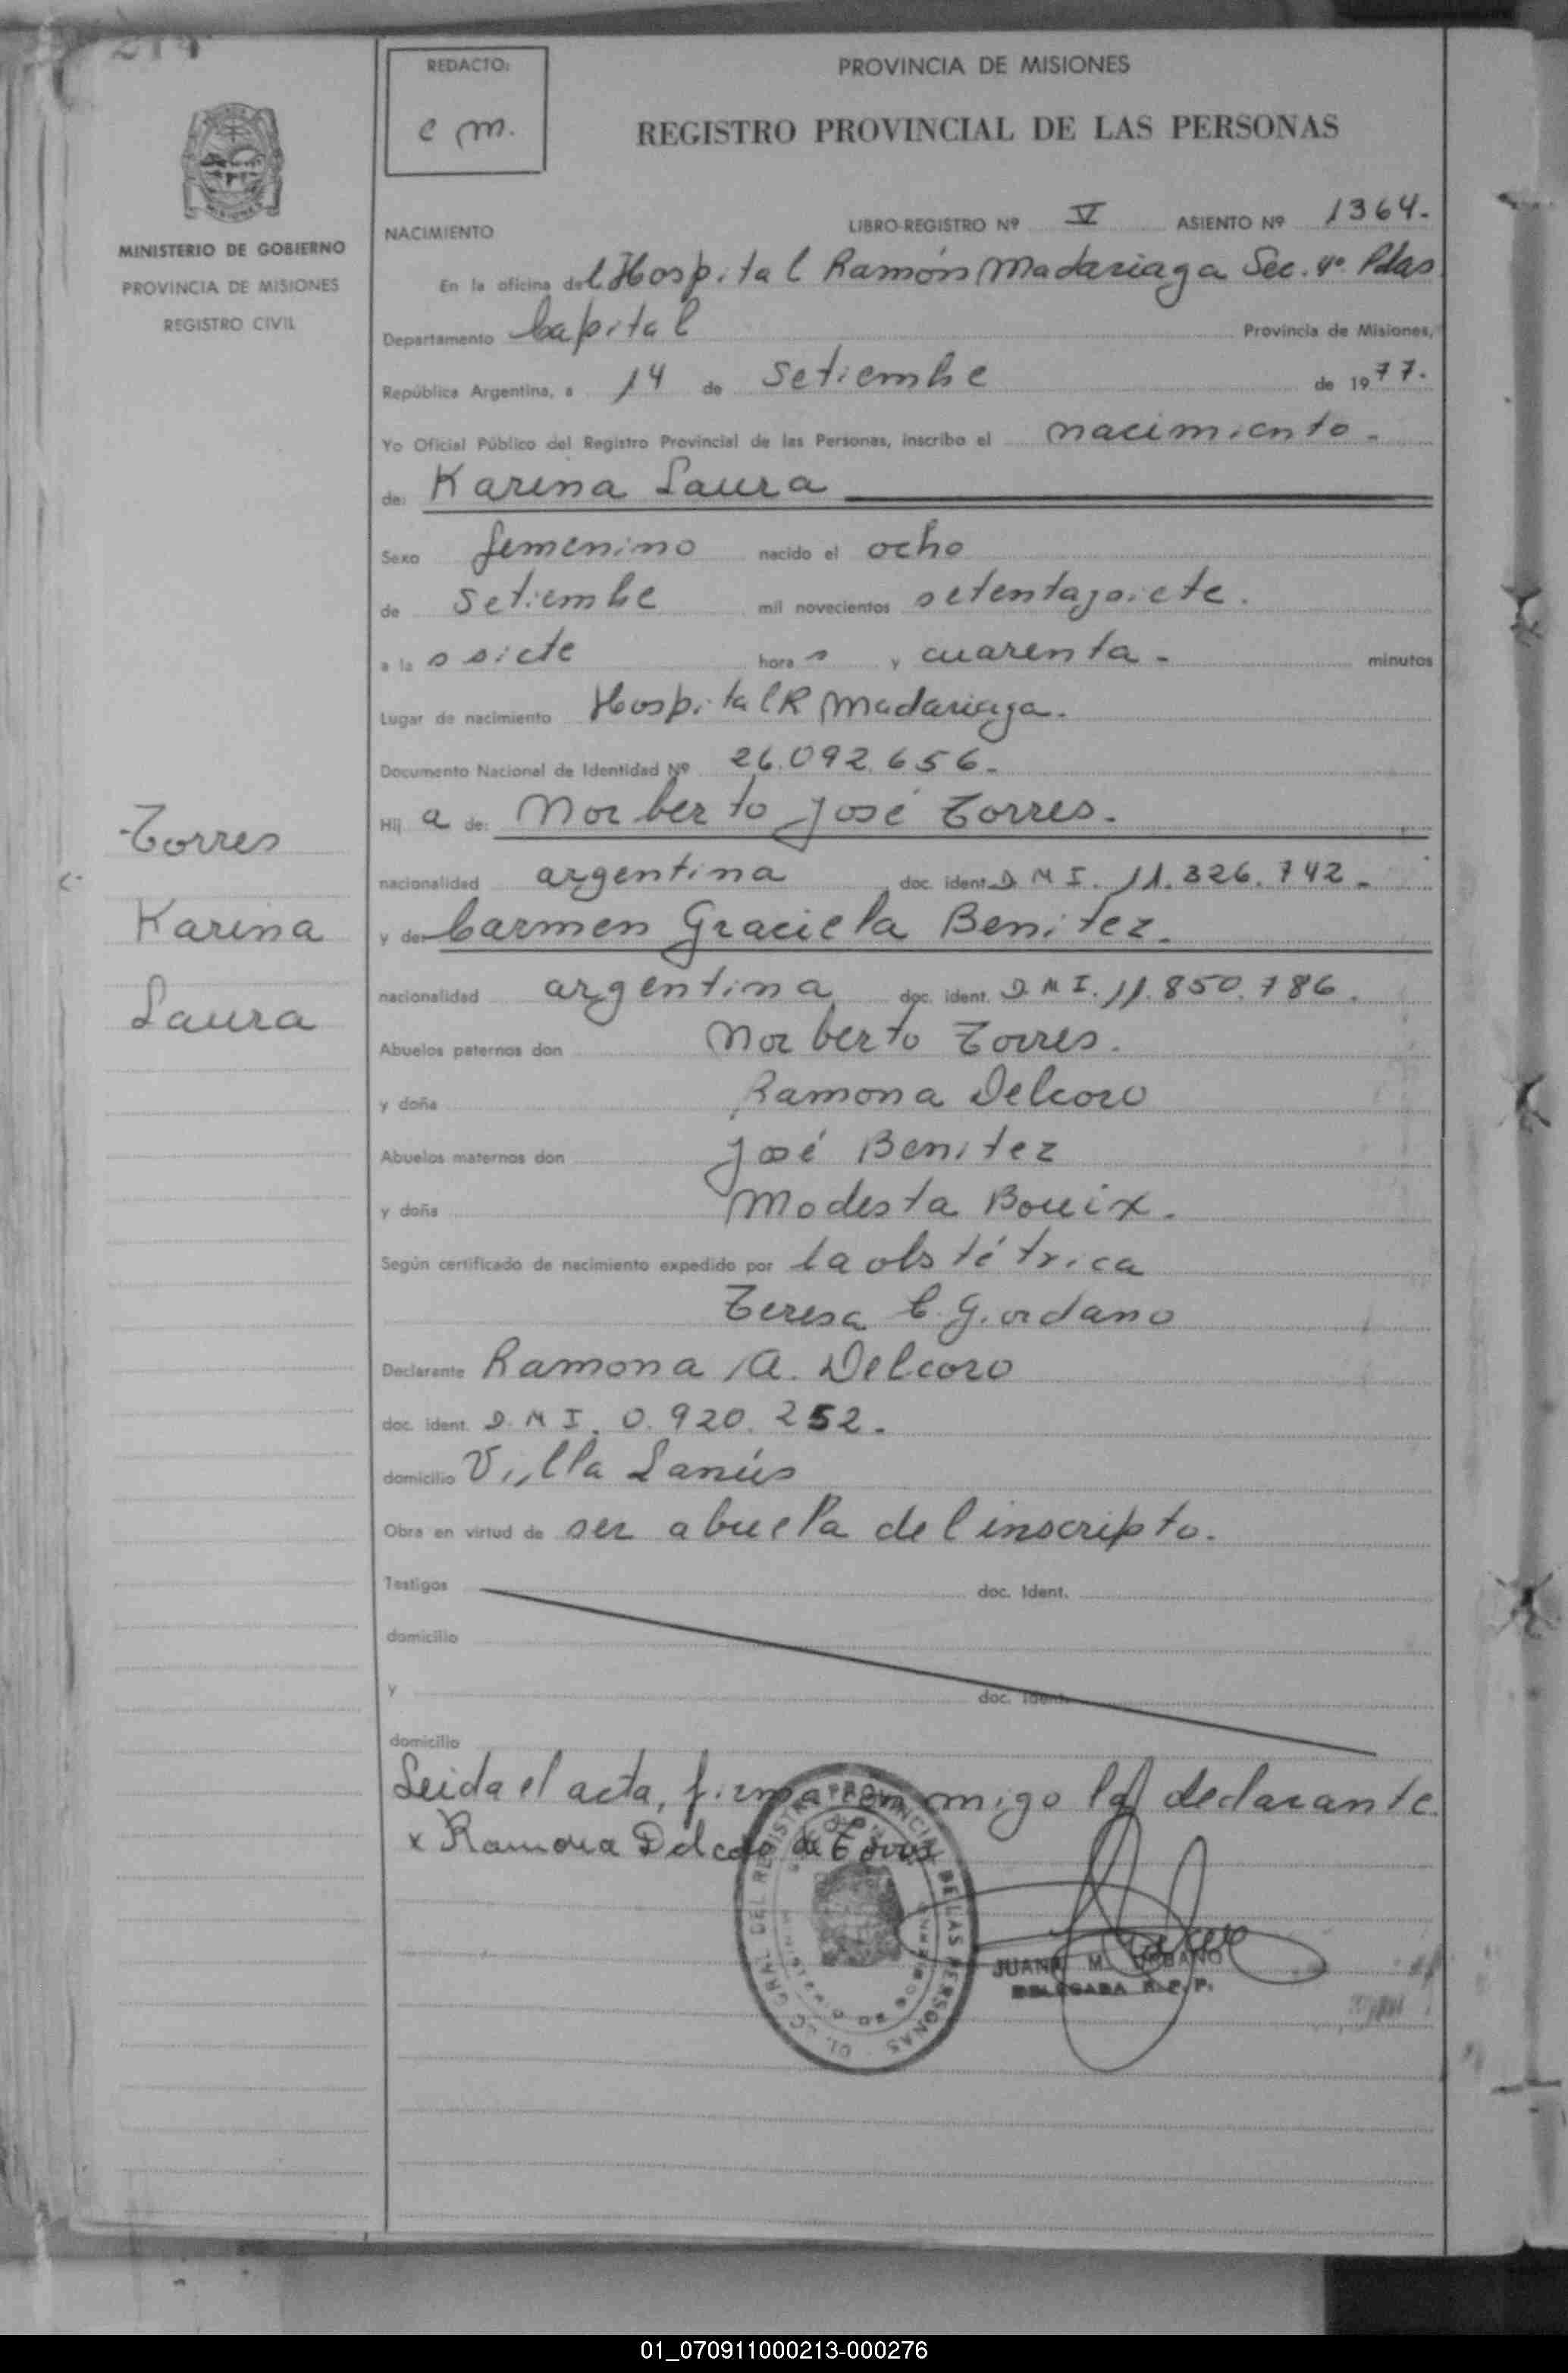 214
REDACTO:
C M.
PROVINCIA DE MISIONES
REGISTRO PROVINCIAL DE LAS PERSONAS
MISIONES
MINISTERIO DE GOBIERNO
PROVINCIA DE MISIONES
REGISTRO CIVIL
NACIMIENTO LIBRO-REGISTRO Nº V ASIENTO Nº 1364.
En la oficina del Hospital Ramón Madariaga Sec. 4º. Pdas
Departamento Capital Provincia de Misiones,
República Argentina, a 14 de Setiembre de 1977.
Yo Oficial Público del Registro Provincial de las Personas, inscribo el nacimiento.
de: Karina Laura
Sexo femenino nacido el ocho
de Setiembre mil novecientos setentaysiete.
a las siete horas y cuarenta. minutos
Lugar de nacimiento Hospital R Madariaga.
Documento Nacional de Identidad Nº 26.092.656.
Hija de: Norberto José Torres.
nacionalidad argentina doc. ident. D N I. 11.326.742.
y de: Carmen Graciela Benitez.
nacionalidad argentina doc. ident. D N I. 11.850.786.
Abuelos paternos don Norberto Torres.
y doña Ramona Delcoro
Abuelos maternos don José Benitez
y doña Modesta Bouix.
Según certificado de nacimiento expedido por la obstétrica
Teresa C. Giordano
Declarante Ramona A. Delcoro
doc. ident. D. N I. 0.920.252.
domicilio Villa Lanús
Obra en virtud de ser abuela del inscripto.
Testigos doc. Ident.
domicilio
y doc. Ident.
domicilio
Leida el acta, firma conmigo la declarante.
x Ramona Delcoro de Torres
Torres
Karina
Laura
DEL REGISTRO PROVINCIAL DE LAS PERSONAS
JUANA M. URBANO
DELEGADA R.P.P.
01_070911000213-000276